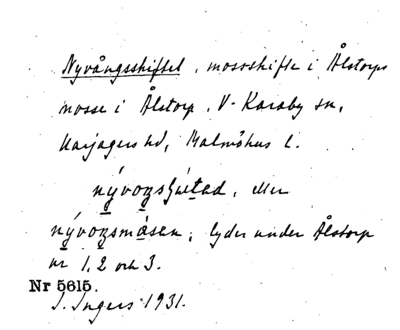 Nyvångsskiftet, mosseskifte i Ålstorps
mosse i Ålstorp, V. Karaby sn,
Harjagers hd, Malmöhus l.
eller
lyder under Ålstorp
nr 1, 2 och 3.
Nr 5615.
I. Ingers 1931.